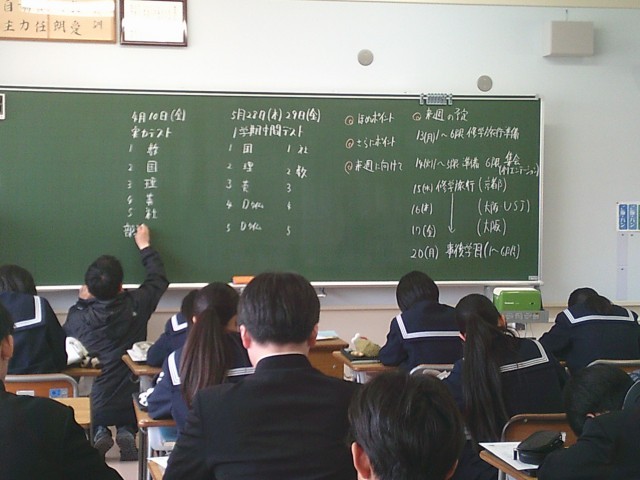 主力任朗受
4月10日(金)
実力テスト
1 数
2 国
3 理
4 英
5 社
5月28日(木) 29日(金)
1学期中間テスト
1 国 1 社
2 理 2 数
3 英 3
4 4
5 5
ほめポイント
さらにポイント
来週に向けて
来週の予定
13(月) 1〜6限 修学旅行準備
14(火) 1〜5限 準備 6限 集会
(オリエンテーション)
15(水) 修学旅行 (京都)
16(木) (大阪 USJ)
17(金) (大阪)
20(月) 事後学習 (1〜6限)